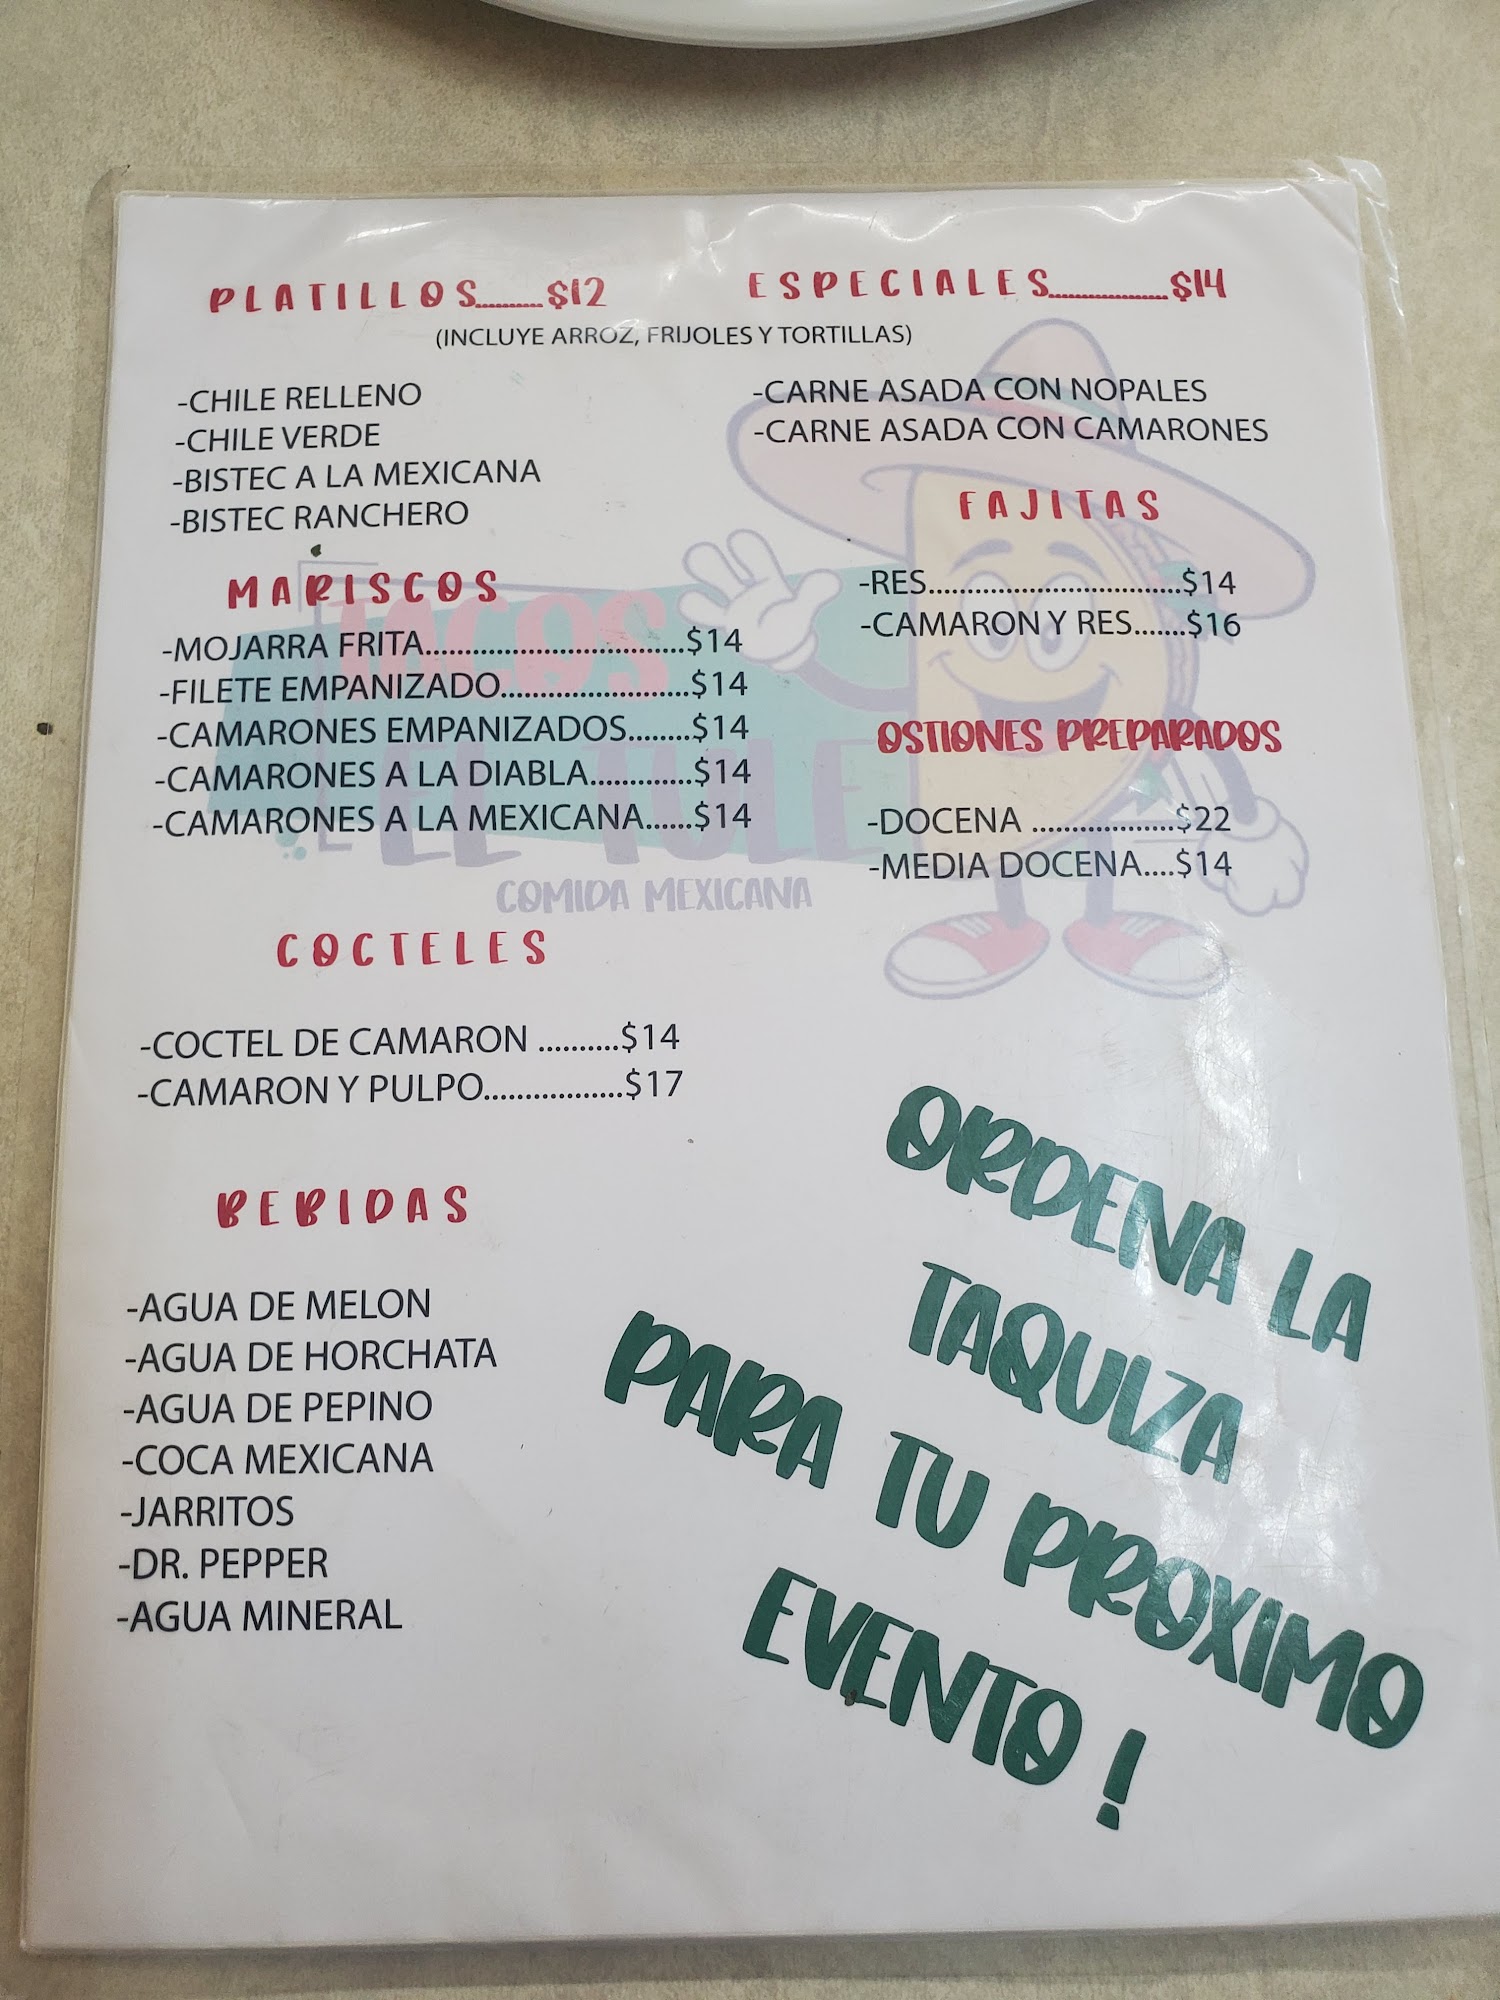 PLATILLOS..........$12
ESPECIALES....................$14
(INCLUYE ARROZ, FRIJOLES Y TORTILLAS)
-CHILE RELLENO
-CHILE VERDE
-BISTEC A LA MEXICANA
-BISTEC RANCHERO
-CARNE ASADA CON NOPALES
-CARNE ASADA CON CAMARONES
FAJITAS
-RES................................$14
-CAMARON Y RES.......$16
MARISCOS
-MOJARRA FRITA.................................$14
-FILETE EMPANIZADO........................$14
-CAMARONES EMPANIZADOS........$14
-CAMARONES A LA DIABLA.............$14
-CAMARONES A LA MEXICANA......$14
OSTIONES PREPARADOS
-DOCENA ..................$22
-MEDIA DOCENA....$14
TACOS
EL TULE
COMIDA MEXICANA
COCTELES
-COCTEL DE CAMARON ..........$14
-CAMARON Y PULPO.................$17
BEBIDAS
-AGUA DE MELON
-AGUA DE HORCHATA
-AGUA DE PEPINO
-COCA MEXICANA
-JARRITOS
-DR. PEPPER
-AGUA MINERAL
ORDENA LA
TAQUIZA
PARA TU PROXIMO
EVENTO !